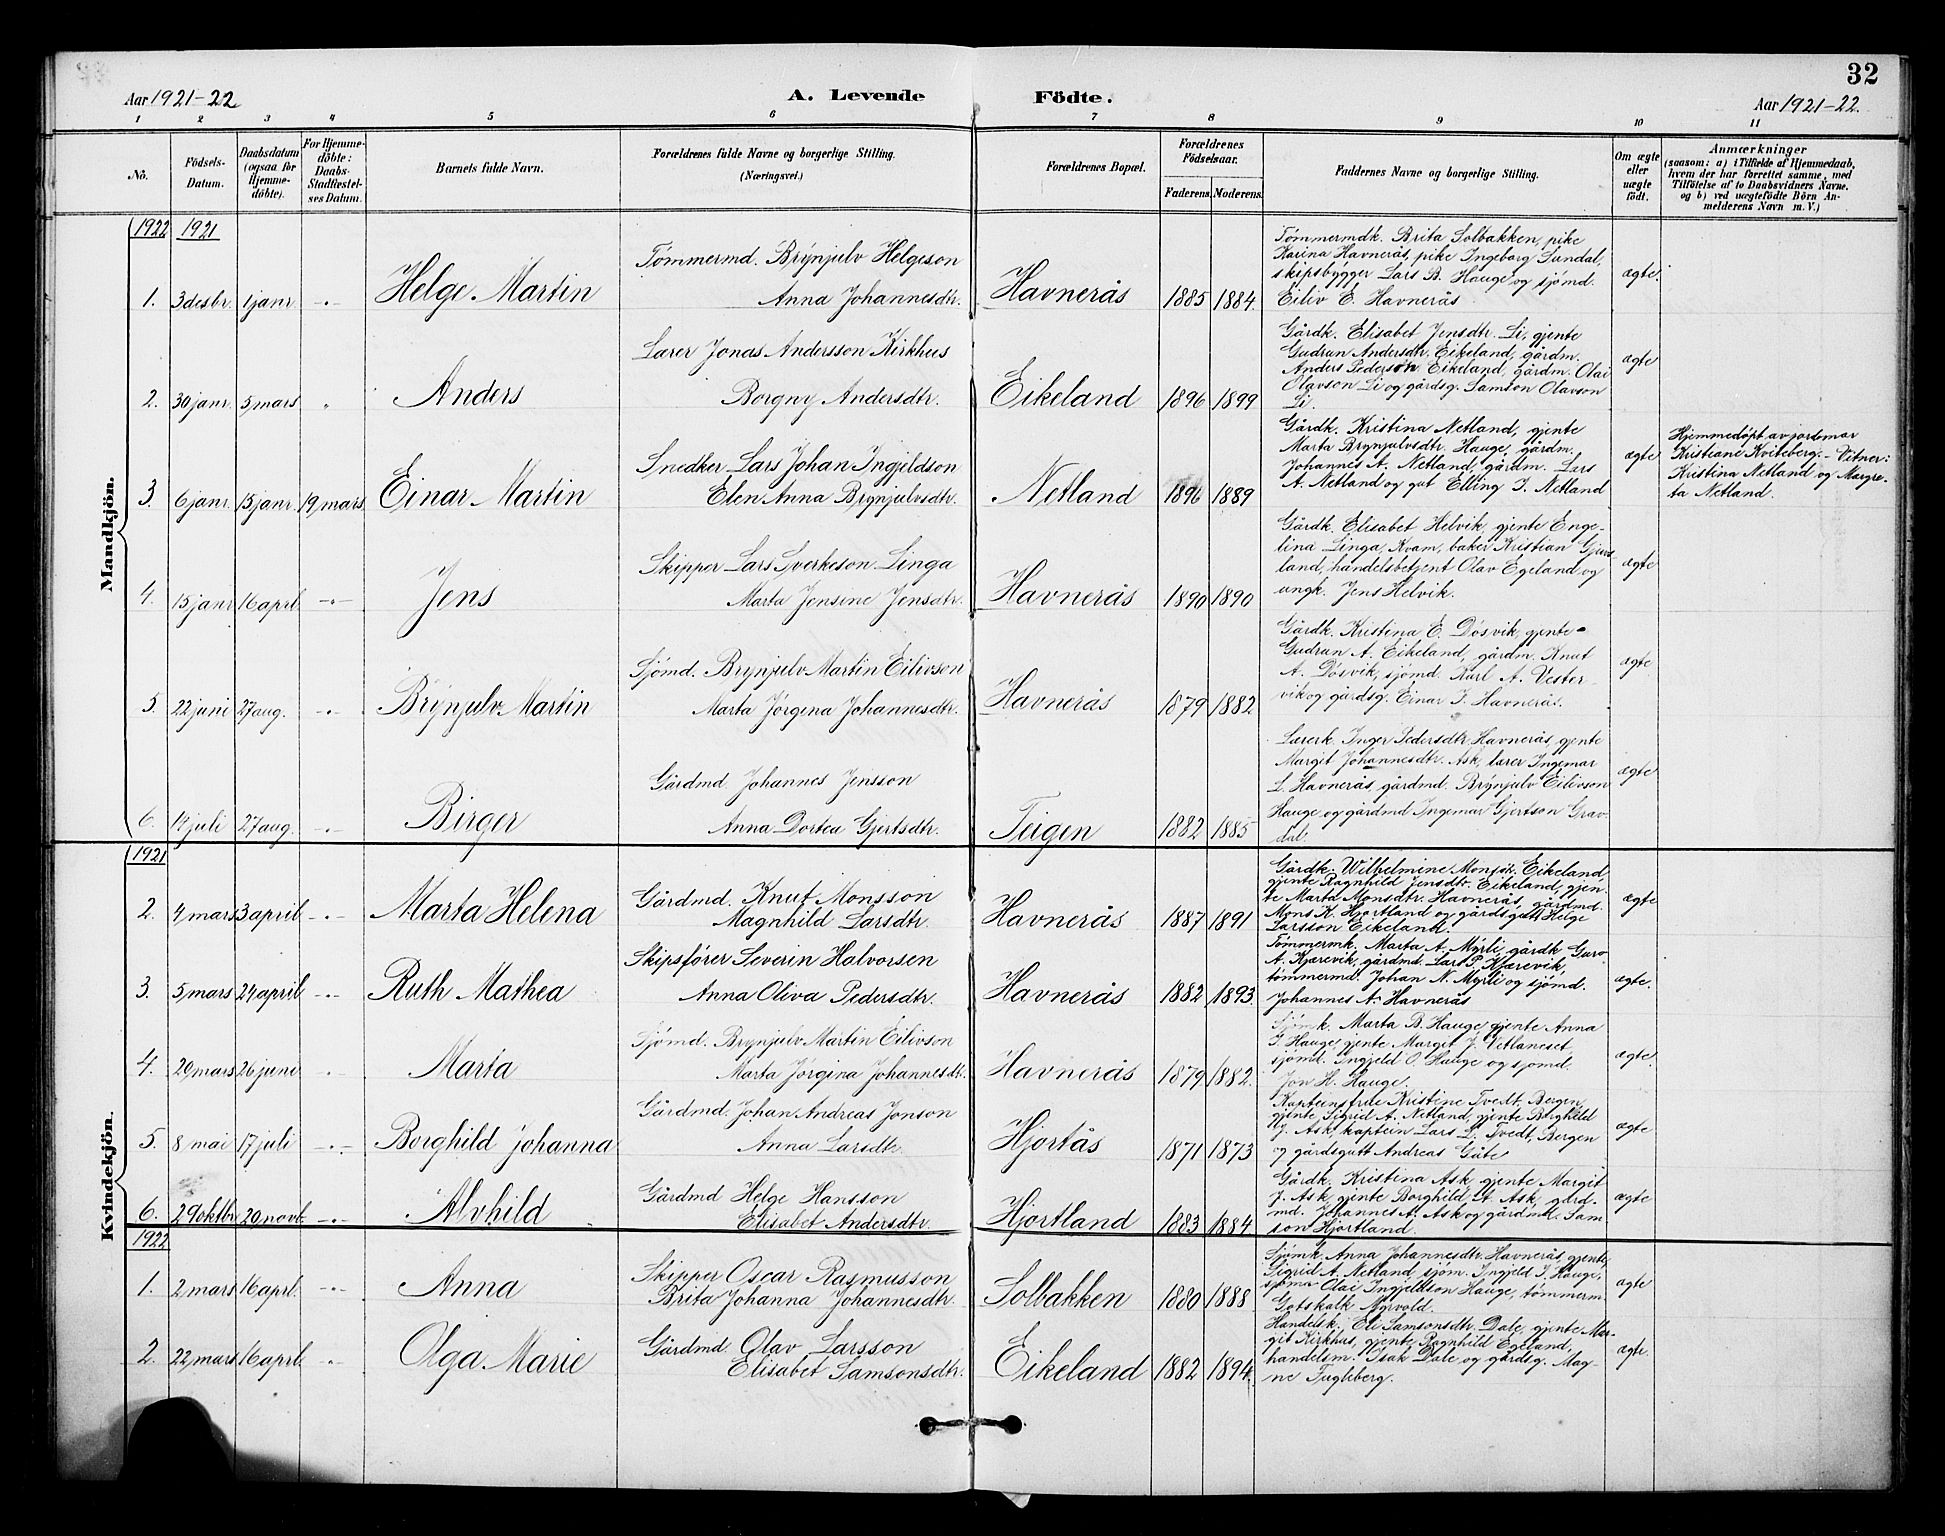 32
Aar 1921-22 A. Levende Födte. Aar 1921-22.
1 2 3 4 5 6 7 8 9 10 11
No. Födsels-Datum. Daabsdatum (ogsaa for Hjemme-döbte). For Hjemme-döbte: Daabs-Stadfæstel-ses Datum. Barnets fulde Navn. Forældrenes fulde Navne og borgerlige Stilling. (Næringsvei.) Forældrenes Bopæl. Forældrenes Födselsaar. Faderens. Moderens. Faddernes Navne og borgerlige Stilling. Om ægte eller uægte födt. Anmærkninger (saasom: a) i Tilfælde af Hjemmedaab, hvem der har forrettet samme, med Tilföielse af to Daabsvidners Navne, og b) ved uægtefödte Börn An-melderens Navn m. V.)
Mandkjön.
1922 1921
1. 3 desbr. 1 janr. -"- Helge Martin
Tømmermd. Brynjulv Helgeson
Anna Johannesdtr.
Havnerås 1885 1884.
Tømmermdk. Brita Solbakken, pike
Karina Havnerås, pike Ingeborg Sundal,
skipsbygger Lars B. Hauge og sjömd.
Eiliv E. Havnerås
ægte.
2. 30 janr. 5 mars " Anders
Lærer Jonas Andersson Kirkhus
Borgny Andersdtr.
Eikeland 1896 1899
Gårdk. Elisabet Jensdtr. Li, gjente
Gudrun Andersdtr. Eikeland, gårdm.
Anders Pederson Eikeland, gårdm. Olai
Olavson Li og gårdsg. Samson Olavson
Li.
ægte
3. 6 janr. 15 janr. 19 mars. Einar Martin
Snedker Lars Johan Ingjeldson
Elen Anna Brynjulvsdtr.
Netland 1896 1889
Gårdk. Kristina Netland, gjente
Marta Brynjulvsdtr. Hauge, gårdm.
Johannes A. Netland, gårdm. Lars
A. Netland og gut Elling I. Netland
ægte
Hjemmedöpt av jordmor
Kristiane Kviteberg. - Vitner:
Kristina Netland og Margre-
ta Netland.
4. 15 janr 16 aprl. -"- Jens
Skipper Lars Sverkeson Linga
Marta Jensine Jensdtr.
Havnerås 1890 1890
Gårdk. Elisabet Helvik, gjente Enge-
lina Linga, Kvam, baker Kristian
land, handelsbetjent Olav Egeland og
ungk. Jens Helvik.
ægte
5. 22 juni 27 aug. -"- Brynjulv Martin
Sjömd. Brynjulv Martin Eilivson
Marta Jörgena Johannesdtr.
Havnerås 1879 1882
Gårdk. Kristina E. Døsvik, gjente
Gudrun A. Eikeland, gårdm. Knut
A. Døsvik, sjömd. Karl A. Vester-
vik og gårdsg. Einar J. Havnerås.
ægte
6. 14 juli 27 aug. -"- Birger
Gårdmd. Johannes Jensson
Anna Dortea Gjertsdtr.
Teigen 1882 1885
Lærerk. Inger Pedersdtr. Havnerås, gjente
Margit Johannesdtr. Ask, lærer Ingemar
L. Havnerås, gårdmd. Brynjulv Eilivson
Hauge og gårdmd Ingemar Gjertson Grav-
dal.
ægte
Kvindekjön.
1921
2. 4 mars 3 april -"- Marta Helena
Gårdmd. Knut Monsson
Magnhild Larsdtr.
Havnerås 1887 1891
Gårdk. Wilhelmine Monsdt. Eikeland
gjente Ragnhild Jensdtr. Eikeland, gjen-
te Marta Monsdtr. Havnerås, gårdmd.
Mons K. Hjortland og gårdsgutt Helge
Larsson Eikeland.
ægte
3. 5 mars 24 april -"- Ruth Mathea
Skipsfører Severin Halvorsen
Anna Oliva Pedersdtr.
Havnerås 1882 1893.
Tömmermk. Marta A. Myrli, gårdk Guro
A. Kjærevik, gårdmd. Lars P. Kjærevik,
tömmermd. Johan N. Myrli og sjömd.
Johannes A. Havnerås
ægte.
4. 20 mars 26 juni -"- Maria
Sjömd. Brynjulv Martin Eilivson
Marta Jörgina Johannesdtr.
Havnerås 1879 1882.
Sjömk. Marta B. Hauge, gjente Anna
I. Hauge, gjente Margit J. Vetlaneset
sjömd. Ingjeld O. Hauge og sjömd.
Jon H. Hauge.
ægte.
5. 8 mai 17 juli -"- Borghild Johanna
Gårdmd. Johan Andreas Jonson
Anna Larsdtr.
Hjortås 1871 1873
Kapteinsfrue Kristine Tvedt, Bergen,
gjente Sigrid A. Netland, gjente Borghild
J. Ask, kaptein Lars L. Tvedt, Bergen
og gårdsgutt Andreas Gåte
ægte
6. 29 oktbr. 20 novb. -"- Alvhild
Gårdmd Helge Hansson
Elisabet Andersdtr.
Hjortland 1883 1884
Gårdk. Kristina Ask, gjente Margit
J. Ask, gjente Borghild A. Ask, gård-
md. Johannes A. Ask og gårdmd. Sam-
son Hjortland.
ægte
1922
1. 2 mars 16 aprl. -"- Anna
Skipper Oscar Rasmusson
Brita Johanna Johannesdtr.
Solbakken 1880 1888
Sjömk. Anna Johannesdtr. Havnerås, gjente
Sigrid A. Netland, sjöm. Ingjeld I. Hauge,
sjöm. Olai Ingjeldson Hauge, tömmerm.
Gotskalk Myrvold.
ægte
2. 22 mars 16 aprl. -"- Olga Marie
Gårdmd Olav Larsson
Elisabet Samsonsdtr.
Eikeland 1882 1894.
Handelsk. Eli Samsonsdtr. Dale, gjente Mar-
git Kirkhus, gjente Ragnhild Egeland,
handelsm. Isak Dale og gårdsg. Mag-
ne Fugleberg.
ægte.